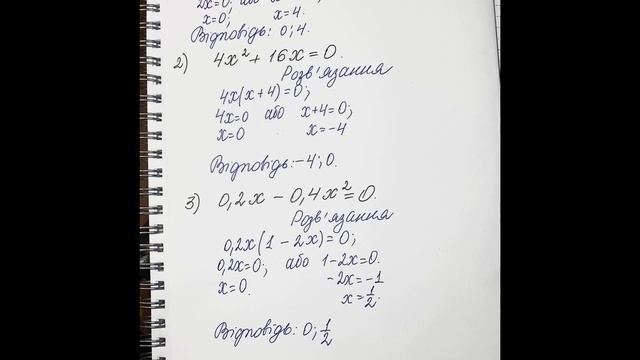 2x=0; або x
x=0; x=4.
Відповідь: 0; 4.
2) 4x² + 16x = 0.
Розв'язання
4x(x+4)=0;
4x=0 або x+4=0;
x=0 x=-4
Відповідь: -4; 0.
3) 0,2x - 0,4x² = 0.
Розв'язання
0,2x(1 - 2x)=0;
0,2x=0; або 1-2x=0.
x=0. -2x=-1
x=1/2.
Відповідь: 0; 1/2